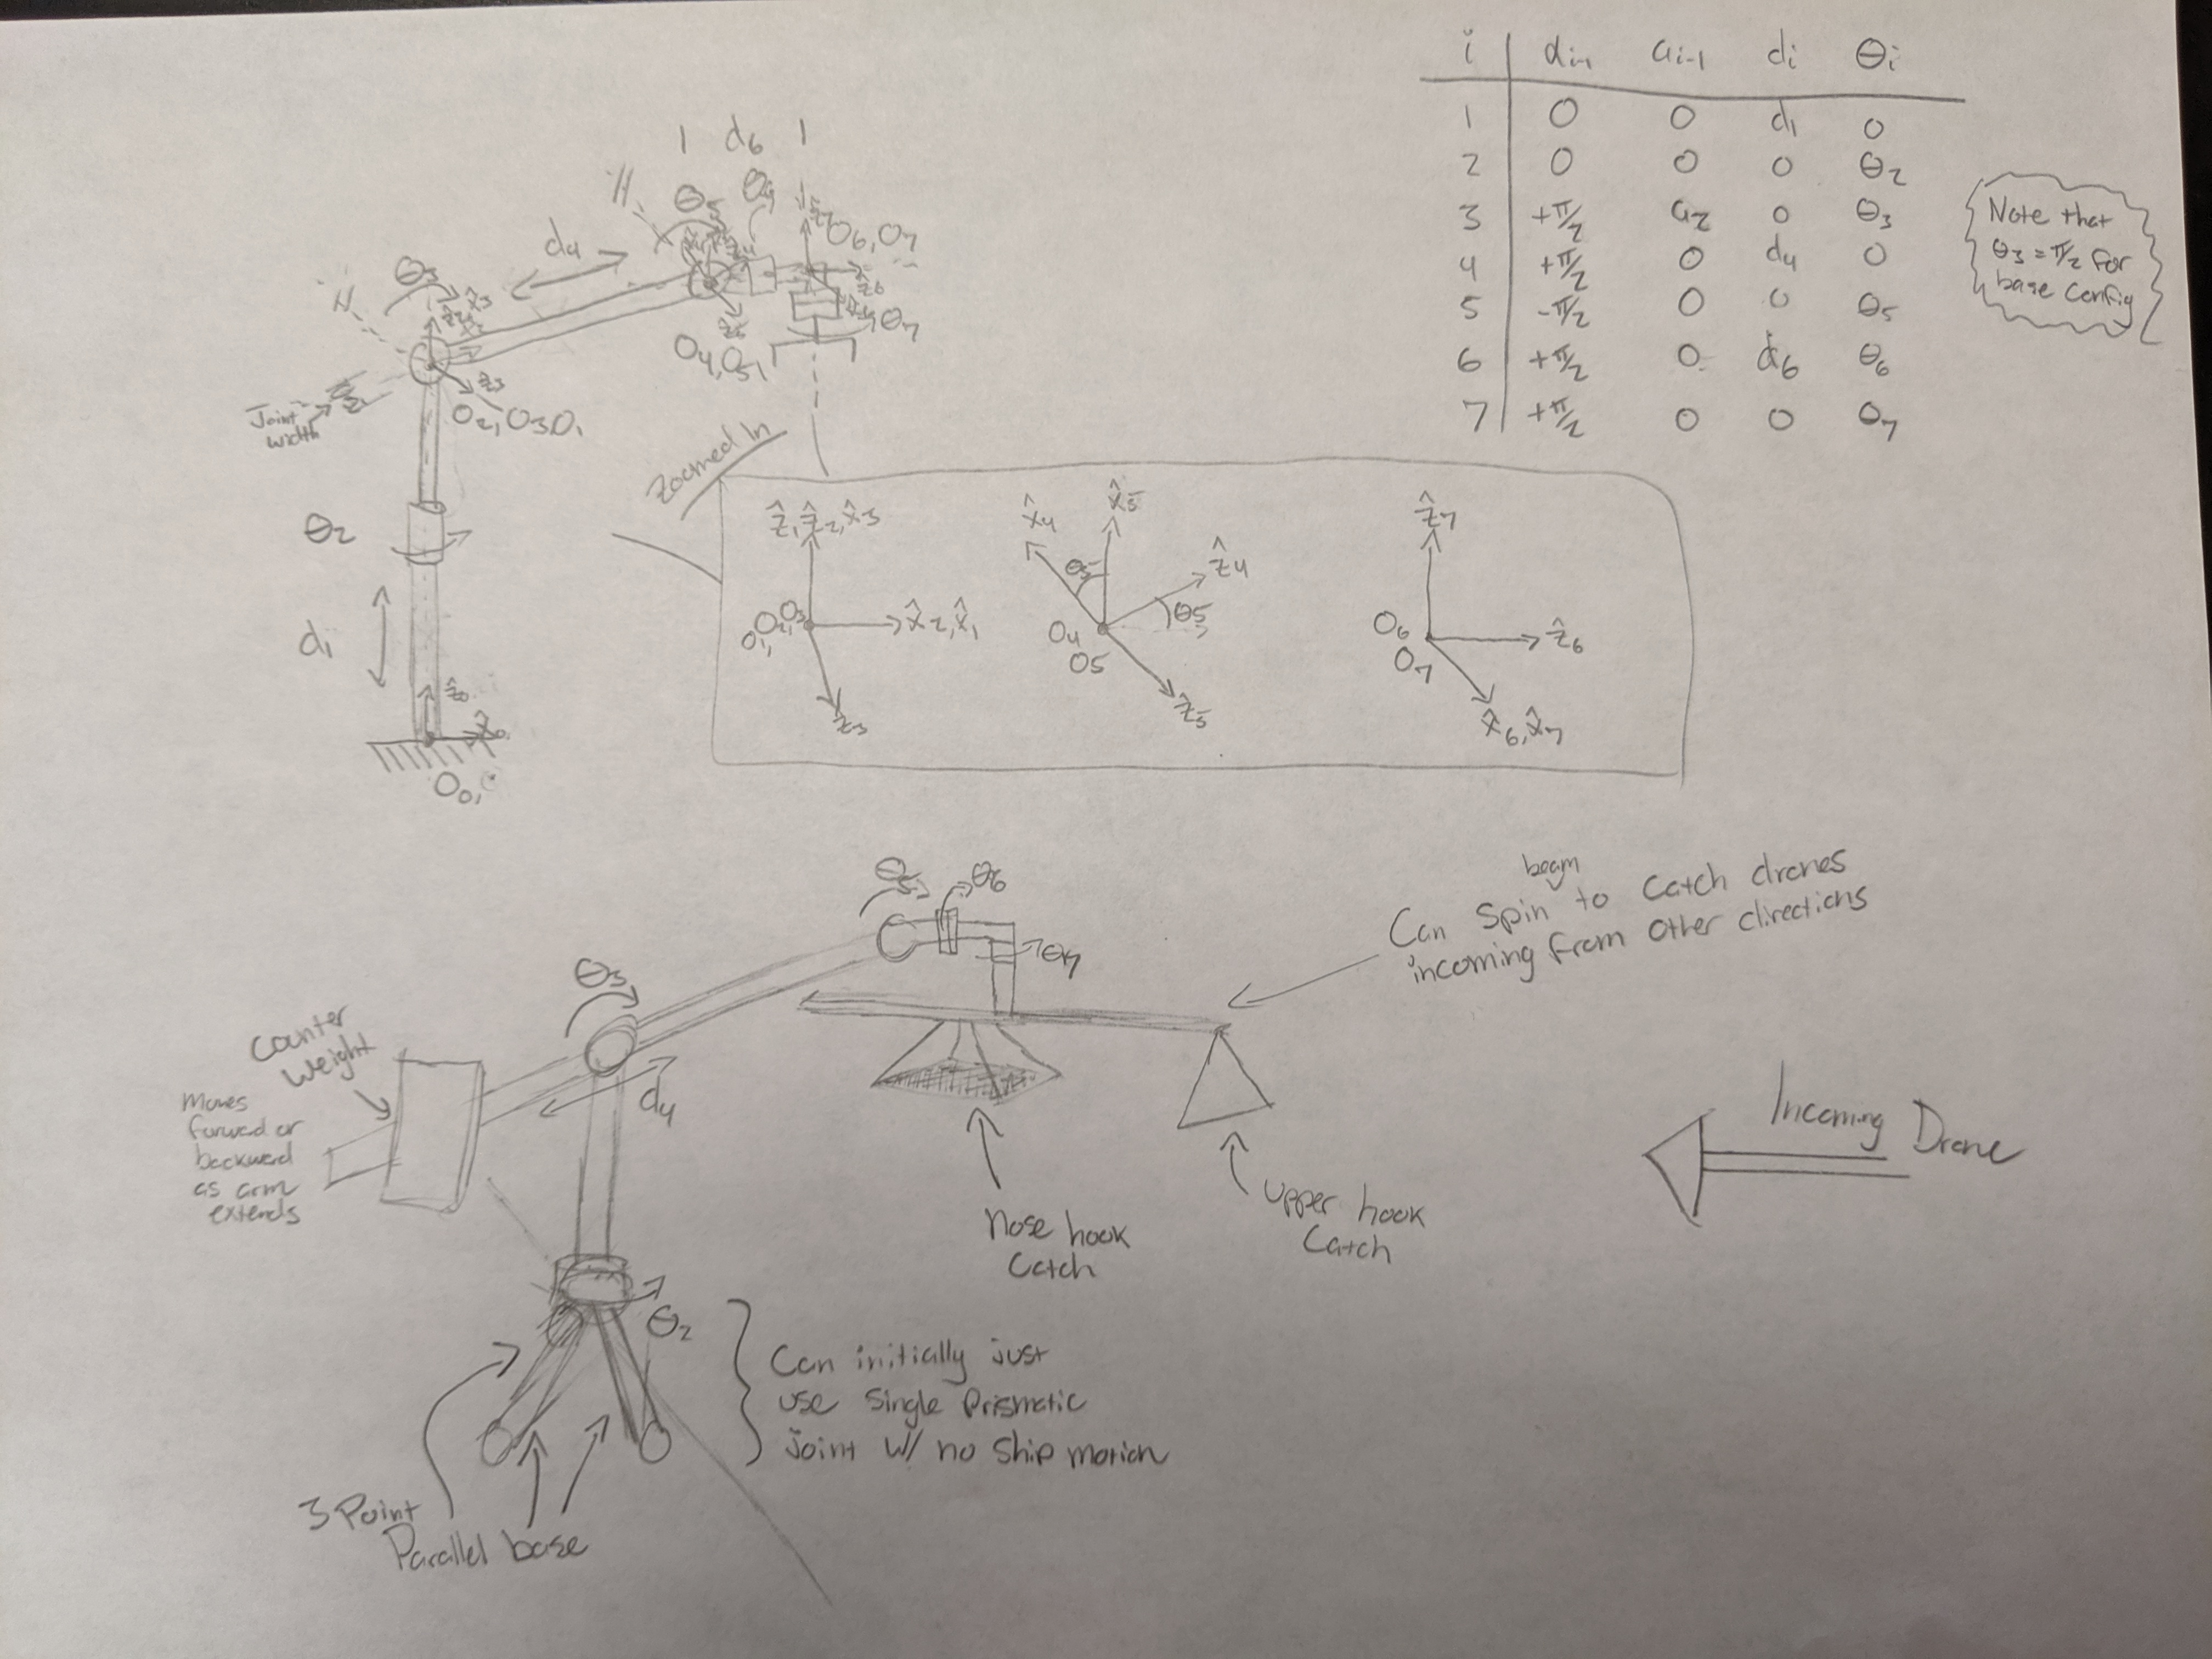 i αi-1 ai-1 di θi
1 0 0 d1 0
2 0 0 0 θ2
3 +π/2 a2 0 θ3
4 +π/2 0 d4 0
5 -π/2 0 0 θ5
6 +π/2 0 d6 θ6
7 +π/2 0 0 θ7
Note that
θ3 = π/2 for
base config
d6
θ5
d4
θ3
O6, O7
ẑ6
θ7
O4, O5
ẑ5
ẑ3
O2, O3, O1
Joint
width
θ2
d1
ẑ0
x̂0
O0,
Zoomed In
ẑ1, ẑ2, x̂3
x̂2, x̂1
O1, O2, O3
ẑ3
x̂4
x̂5
θ5
ẑ4
θ5
O4
O5
ẑ5
ẑ7
O6
O7
ẑ6
x̂6, x̂7
θ5
θ6
θ7
θ3
d4
θ2
beam
Can spin to catch drones
incoming from other directions
Counter
Weight
Moves
forward or
backward
as arm
extends
Nose hook
Catch
Upper hook
Catch
Incoming Drone
Can initially just
use single prismatic
joint w/ no ship motion
3 Point
Parallel base